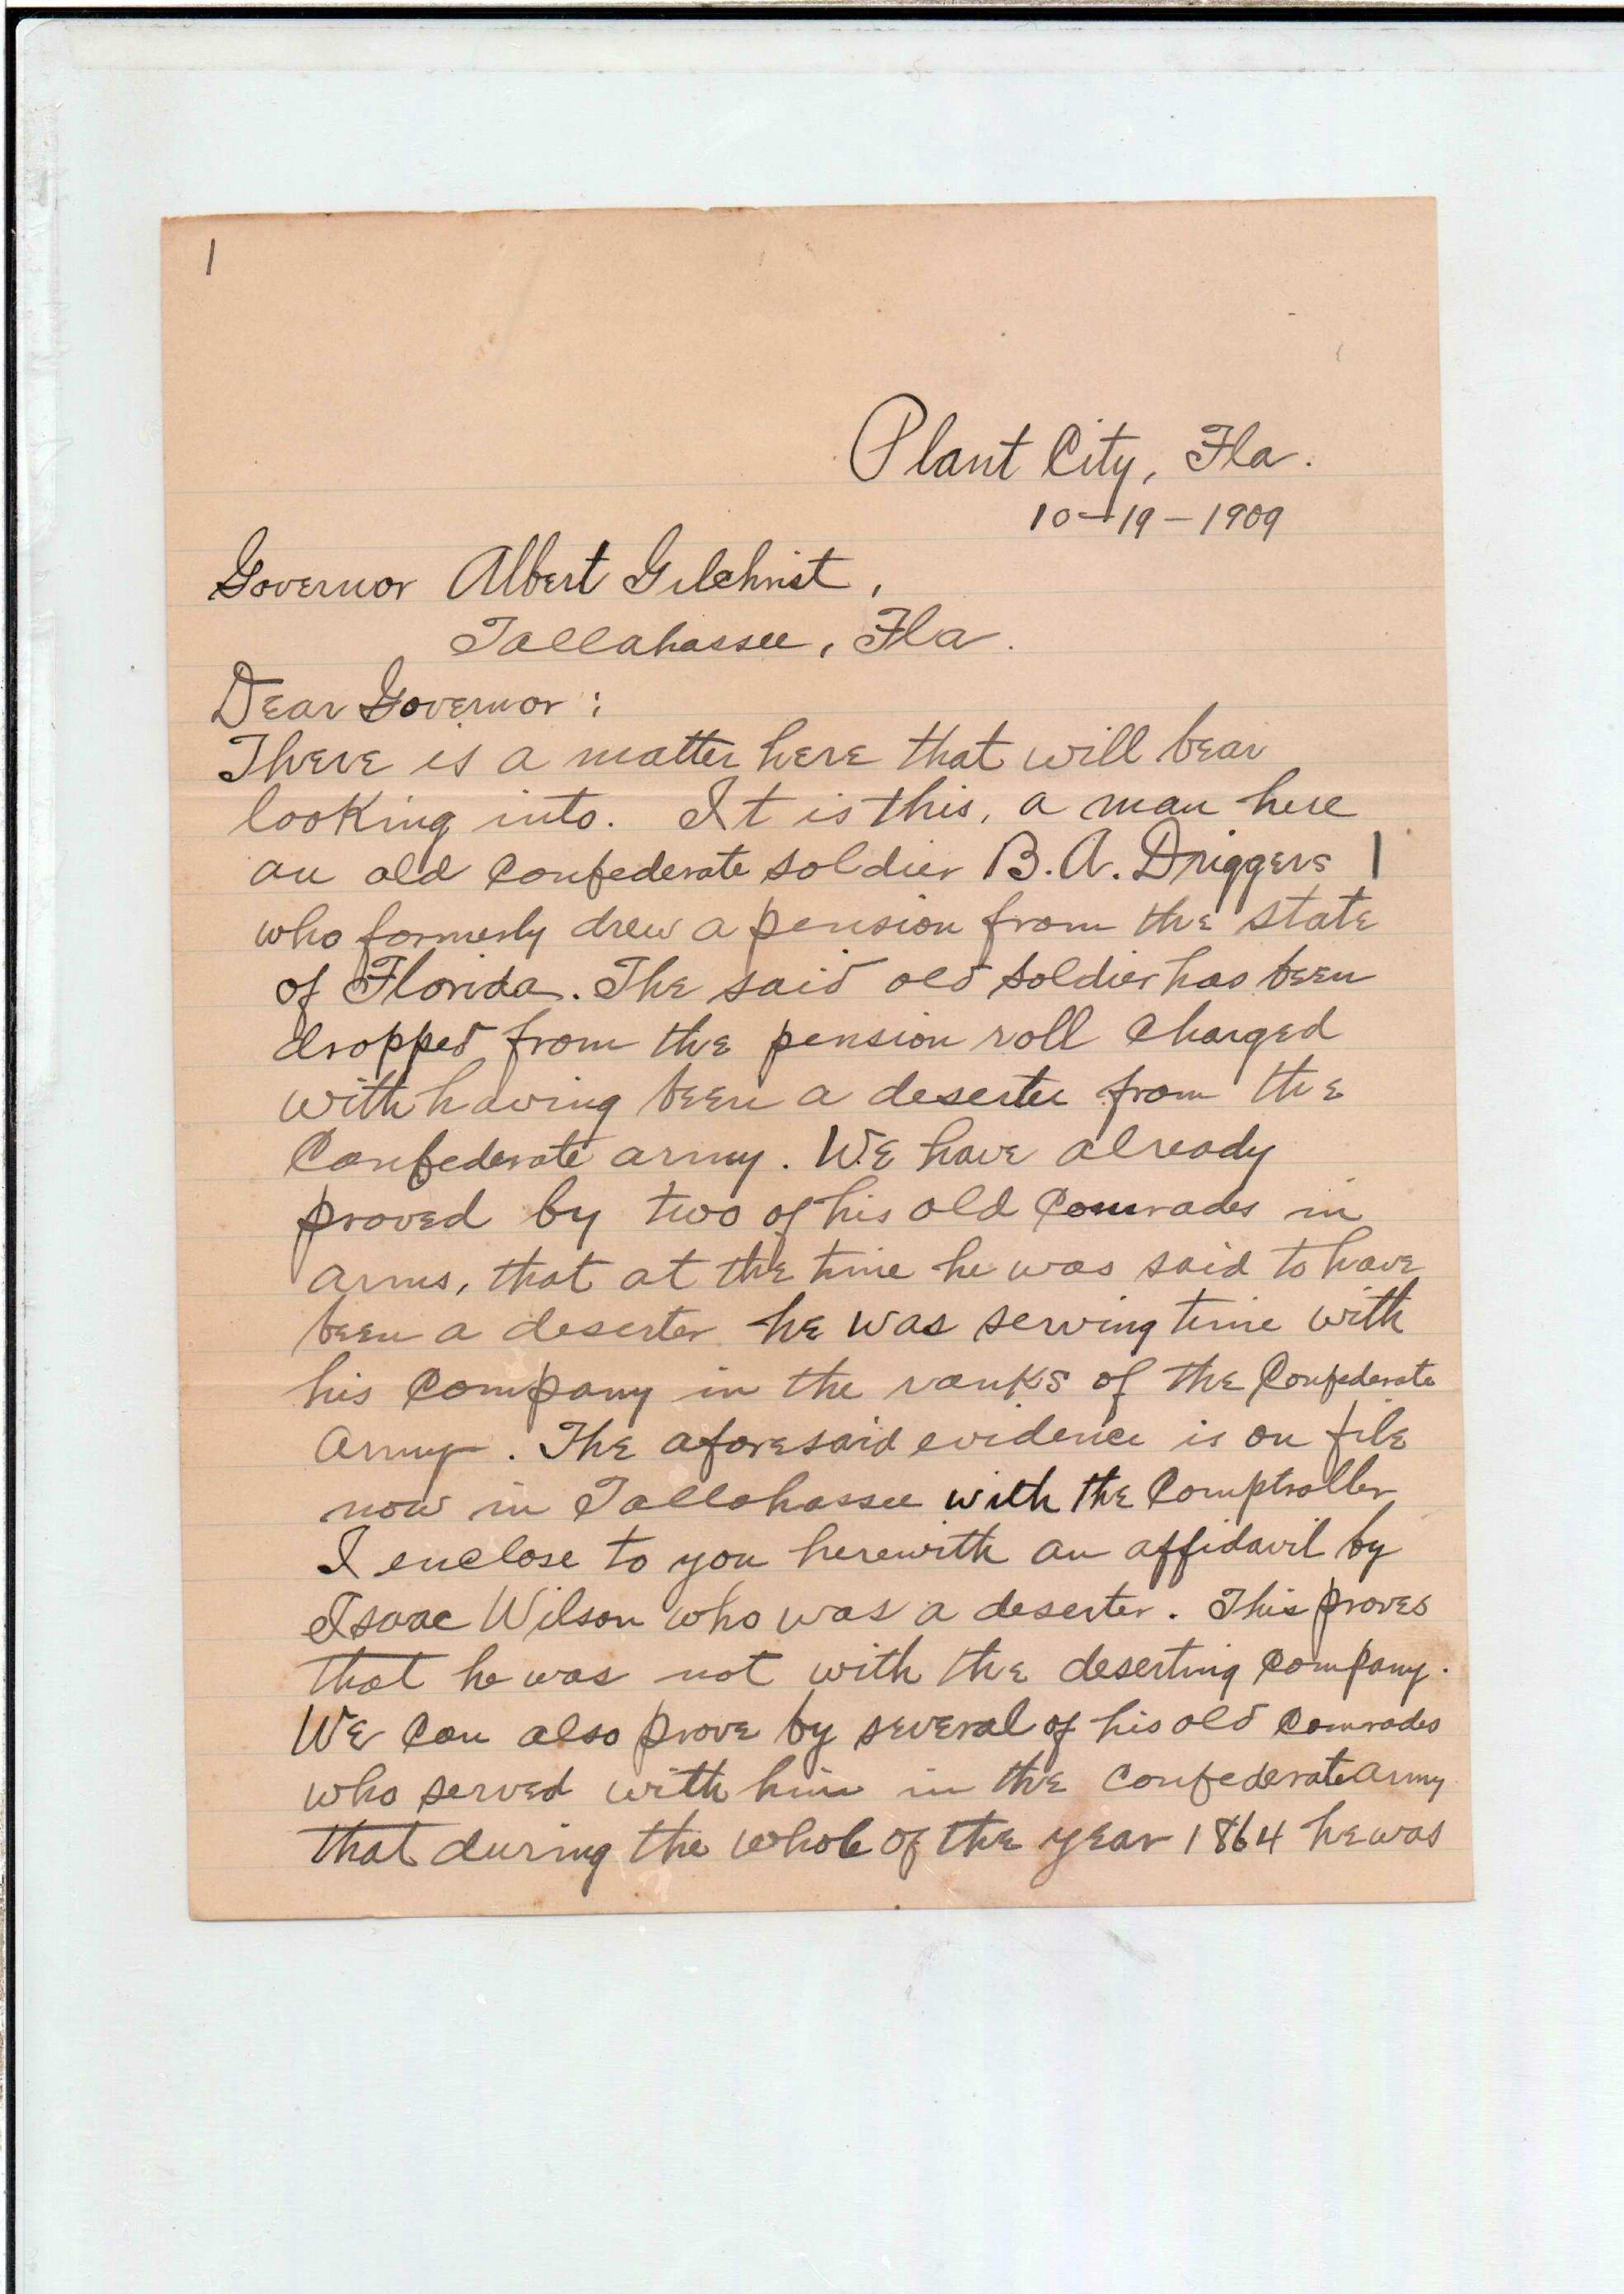 1
Plant City, Fla.
10-19-1909
Governor Albert Gilchrist,
Tallahassee, Fla.
Dear Governor:
There is a matter here that will bear
looking into. It is this, a man here
an old Confederate soldier B. A. Driggers
who formerly drew a pension from the state
of Florida. The said old soldier has been
dropped from the pension roll charged
with having been a deserter from the
Confederate army. We have already
proved by two of his old Comrades in
arms, that at the time he was said to have
been a deserter he was serving time with
his Company in the ranks of the Confederate
Army. The aforesaid evidence is on file
now in Tallahassee with the Comptroller
I enclose to you herewith an affidavit by
Isaac Wilson who was a deserter. This proves
that he was not with the deserting Company.
We can also prove by several of his old Comrades
who served with him in the Confederate army
that during the whole of the year 1864 he was